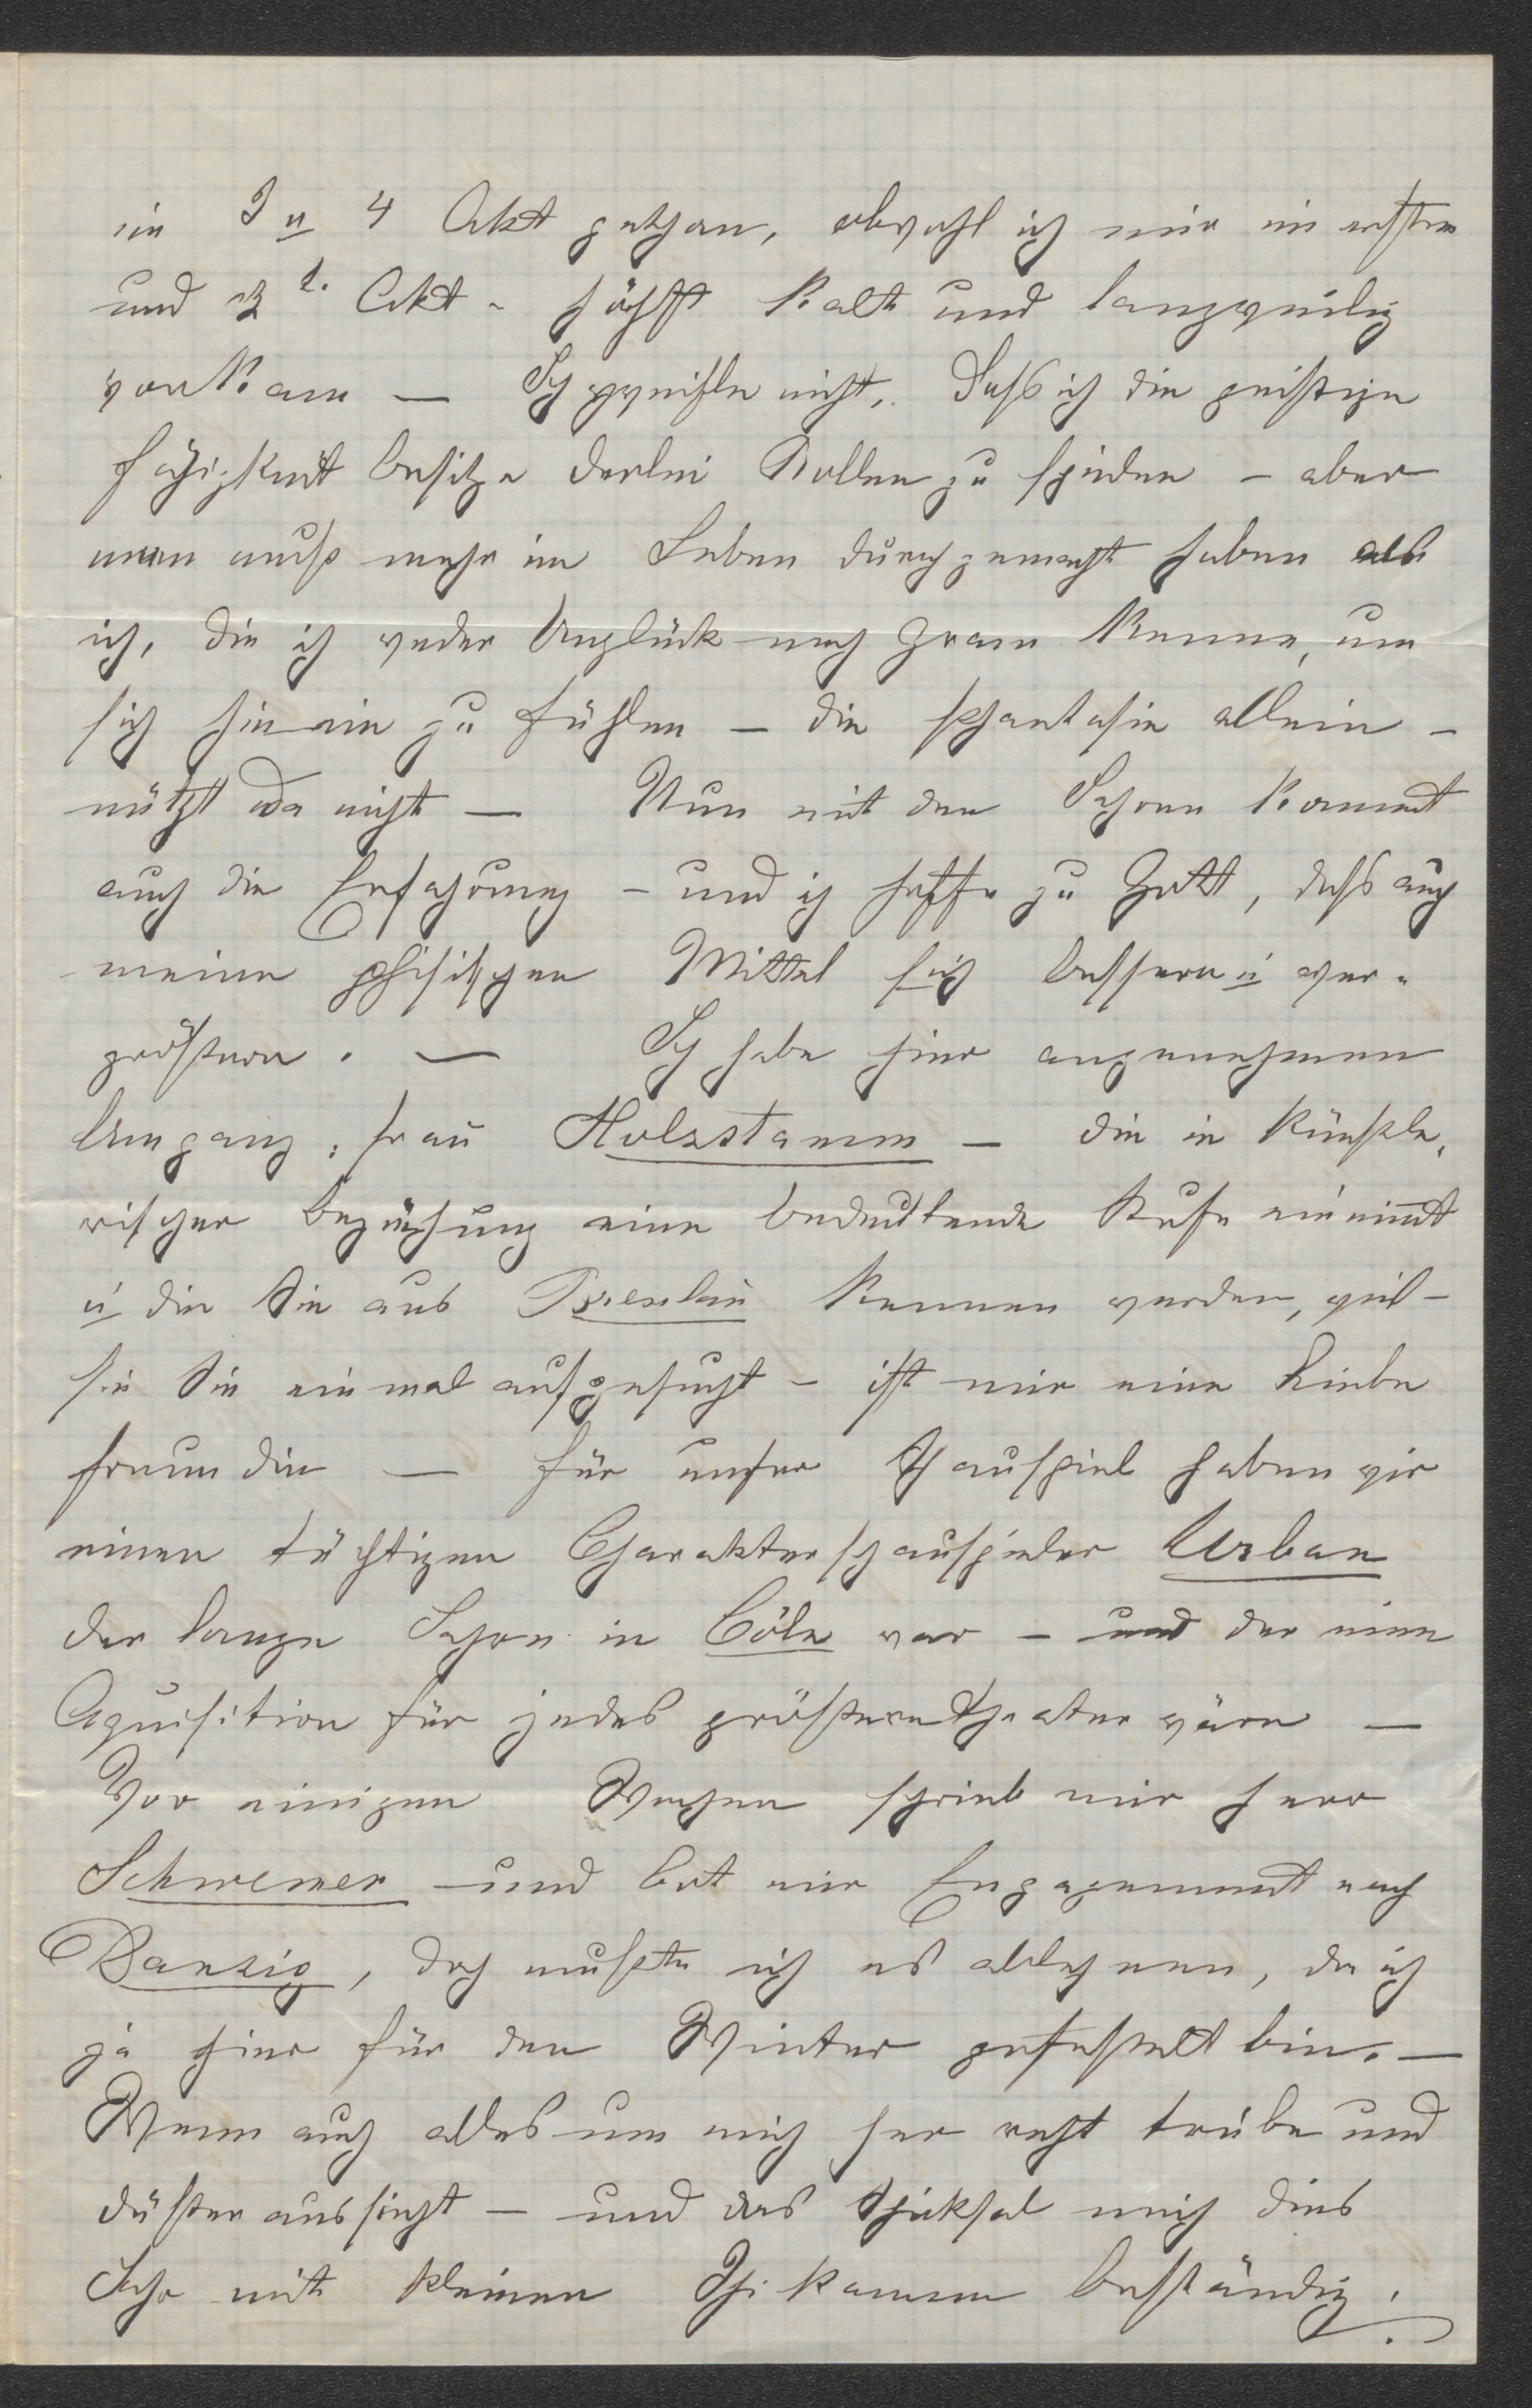 im 3 u 4 Akt gethan, obwohl ich mir im ersten
und 2t. Akt - höchst kalt und langweilig
vorkam — Ich zweifle nicht, dass ich die geistige
Fähigkeit besitze derlei Rollen zu spielen – aber
man muß mehr im Leben durchgemacht haben als
ich, die ich weder Unglück noch Gram kenne, um
sich hinein zu fühlen – die Phantasie allein –
nützt da nicht — Nun mit den Jahren kommt
auch die Erfahrung – und ich hoffe zu Gott, dass auch
meine phisischen Mittel sich bessern u ver-
größern. — Ich habe hier angenehmen
Umgang, Frau Holzstamm – die in künstle-
rischer Beziehung eine bedeutende Stufe einnimt
u die Sie aus Breslau kennen werden, weil
sie Sie einmal aufgesucht – ist mir eine liebe
Freundin — Für unser Schauspiel haben wir
einen tüchtigen Charakterschauspieler Urban
der lange Jahre in Cöln war – und der eine
Aquisition für jedes größere Theater wäre —
Vor einigen Wochen schrieb mir Herr
Schwemer und bot mir Engagement nach
Danzig, doch mußte ich es ablehnen, da ich
ja hier für den Winter gefesselt bin. —
Wenn auch alles um mich her recht trübe und
düster aussieht – und das Schicksal mich dies
Jahr mit kleinen Schikanen beständig